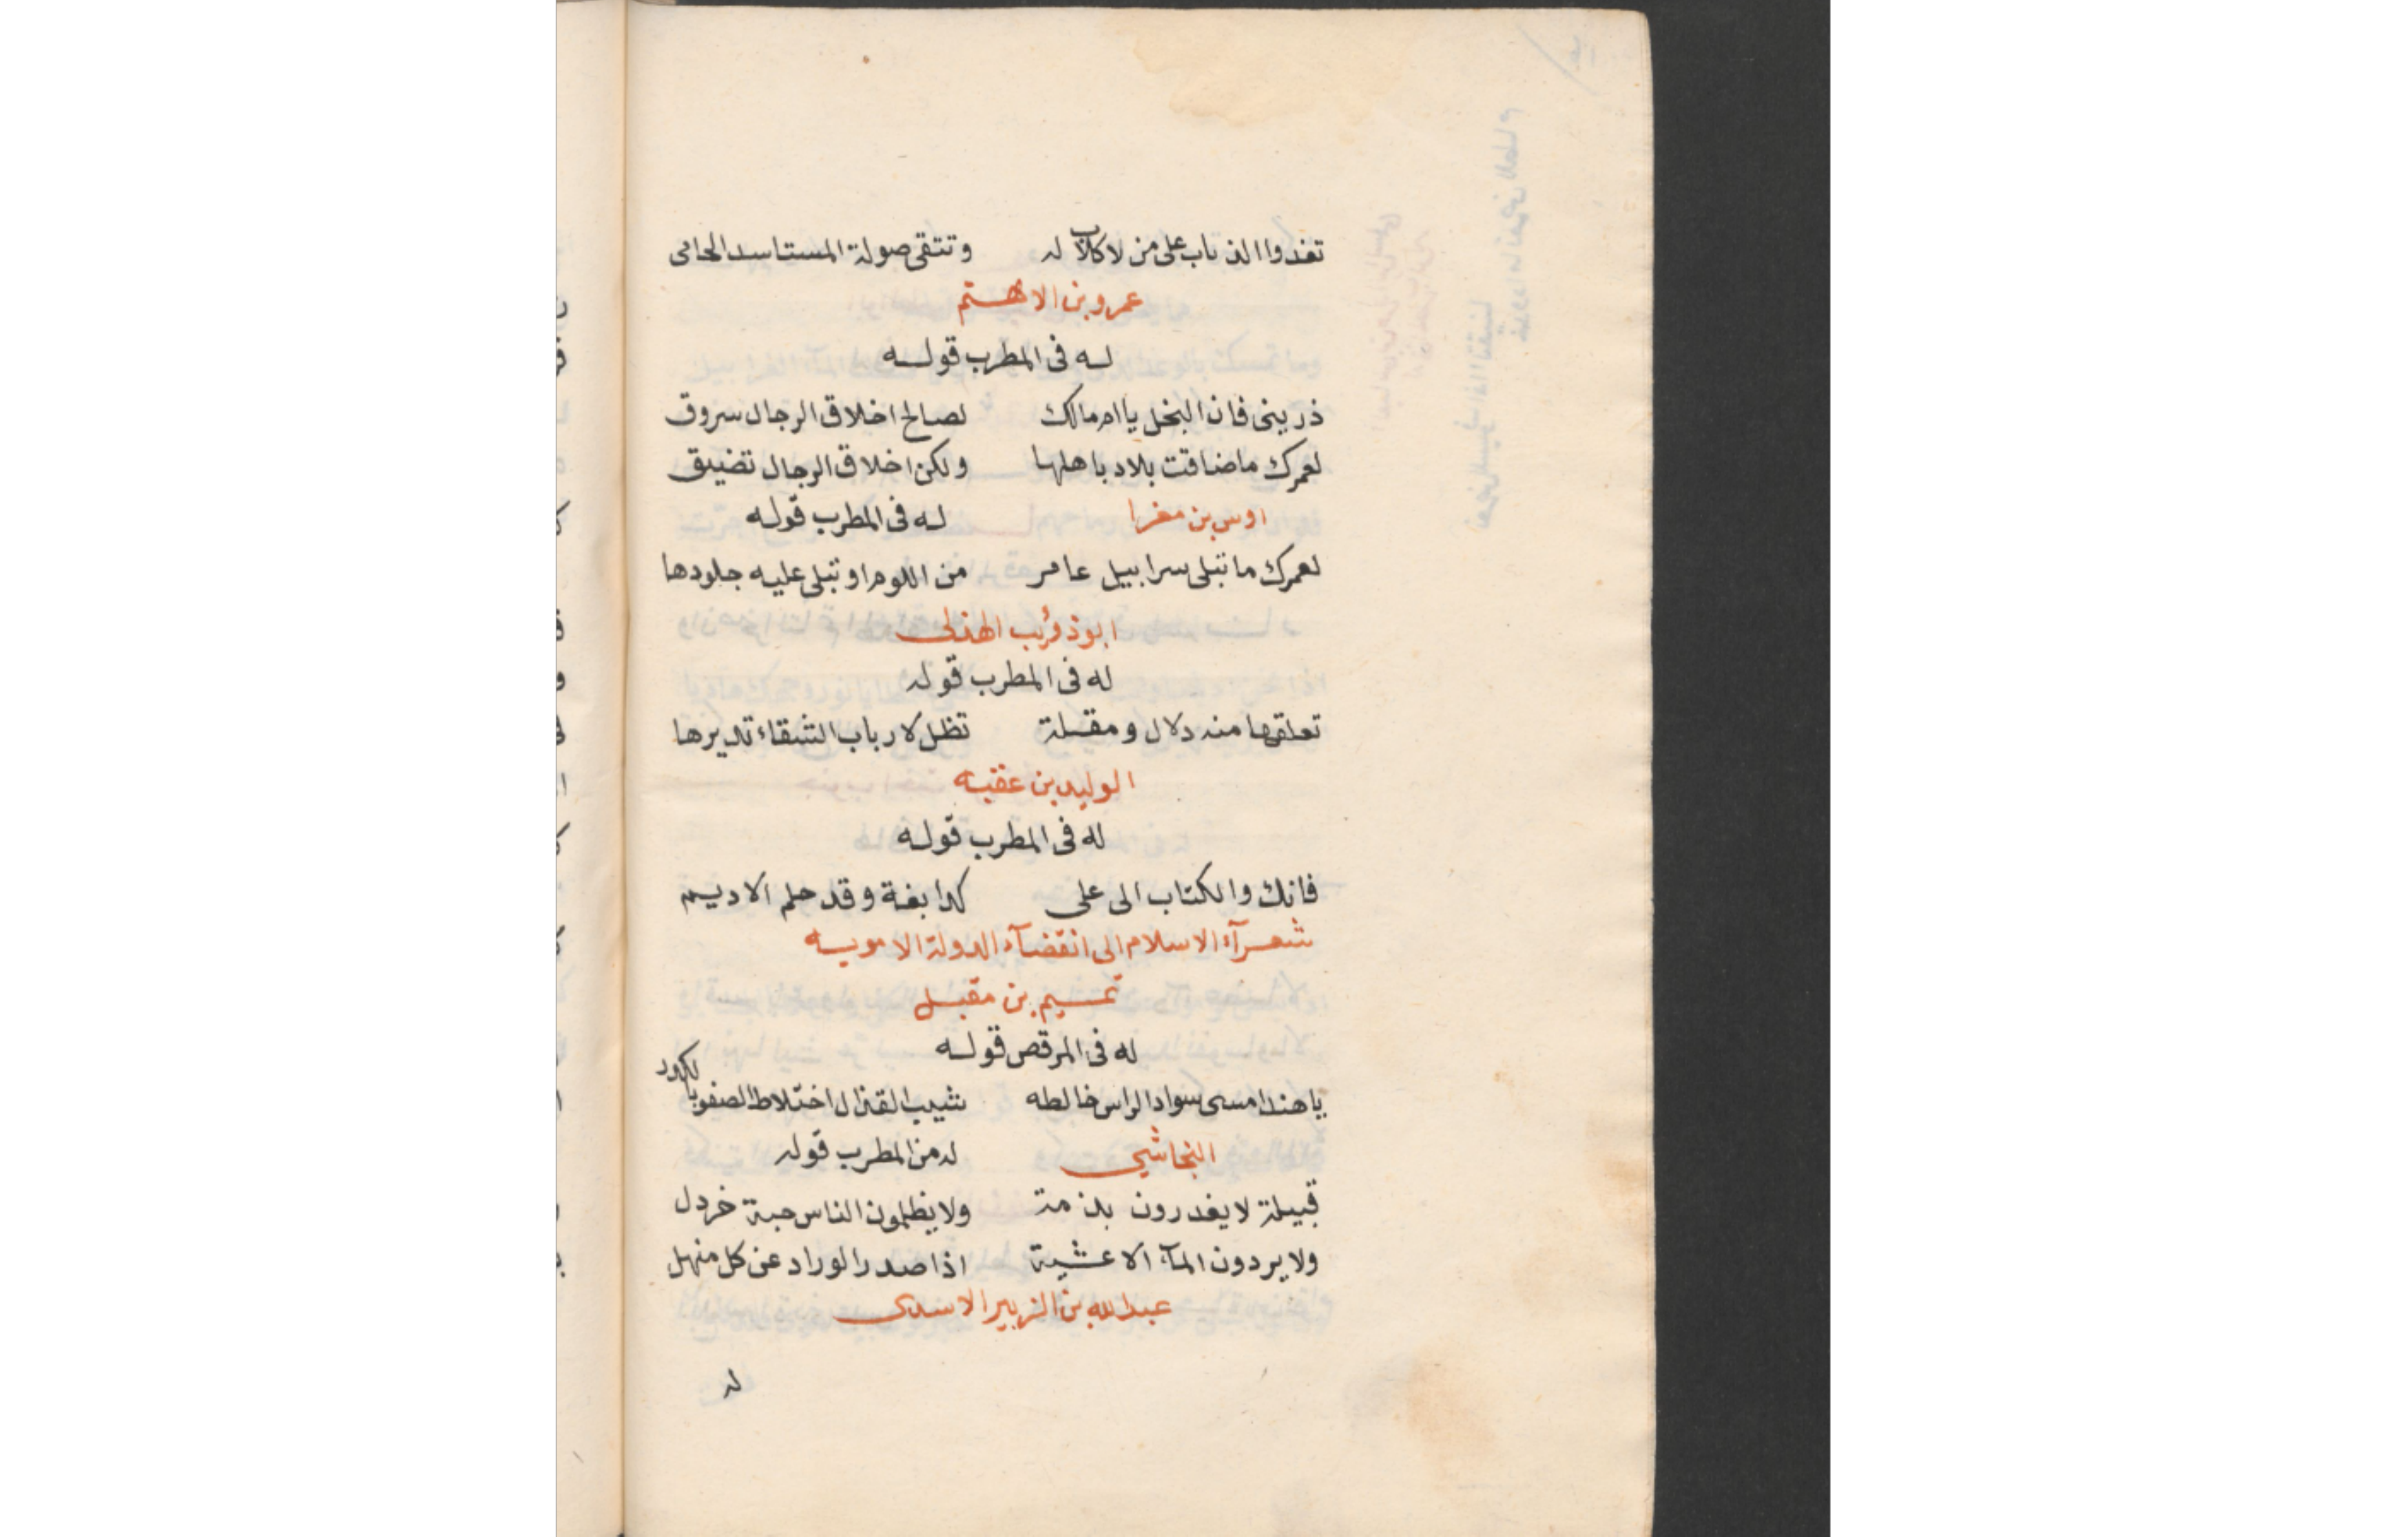 تغدوا الذياب على من لا كلاب له وتتقى صولة المستاسد الحامى
عمرو بن الاهتم
له فى المطرب قوله
ذرينى فان البخل يا ام مالك لصالح اخلاق الرجال سروق
لعمرك ما ضاقت بلاد باهلها ولكن اخلاق الرجال تضيق
اوس بن مغرا له فى المطرب قوله
لعمرك ما تبلى سرابيل عامر من اللوم او تبلى عليه جلودها
ابو ذؤيب الهذلى
له فى المطرب قوله
تعلقها منه دلال ومقلة تظل لارباب الشقاء تديرها
الوليد بن عقبه
له فى المطرب قوله
فانك والكتاب الى على كدابغة وقد حلم الاديم
شعرآء الاسلام الى انقضآء الدولة الامويه
تميم بن مقبل
له فى المرقص قوله
يا هند امسى سواد الراس خالطه شيب القذال اختلاط الصفو بالكدر
النجاشي له من المطرب قوله
قبيلة لا يغدرون بذمة ولا يظلمون الناس حبة خردل
ولا يردون المآء الا عشية اذا صدر الوراد عن كل منهل
عبد الله بن الزبير الاسدى
له